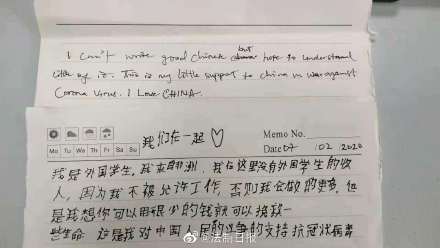 I can't write good Chinese but hope to understand
little of it. This is my little support to china in war against
Corona Virus. I Love CHINA.
我们在一起♡
Memo No.
Mo Tu We Th Fr Sa Su
Date 07 / 02 / 2020
我是外国学生，我来自非洲，我在这里没有外国学生的收
人，因为我不被允许工作，否则我会做的更多，但
是我想你可以用很少的钱就可以拯救一
些生命 这是我对中国人民的战争的支持 抗冠状病毒
@法制日报